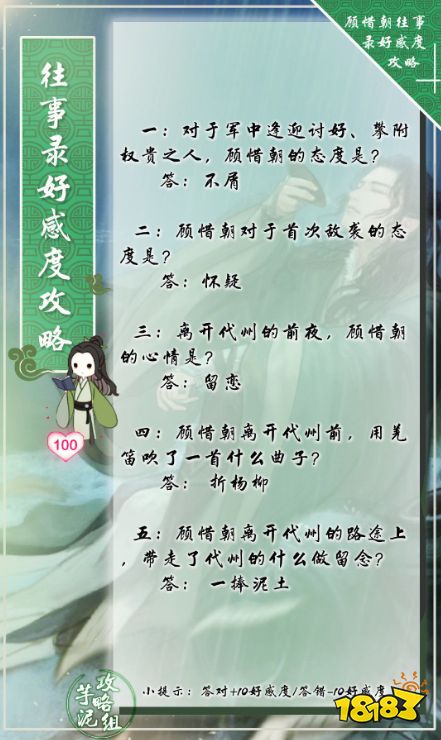 顾惜朝往事
录好感度
攻略
往事录好感度攻略
100
一：对于军中逢迎讨好、攀附
权贵之人，顾惜朝的态度是？
答：不屑
二：顾惜朝对于首次敌袭的态
度是？
答：怀疑
三：离开代州的前夜，顾惜朝
的心情是？
答：留恋
四：顾惜朝离开代州前，用羌
笛吹了一首什么曲子？
答： 折杨柳
五：顾惜朝离开代州的路途上
，带走了代州的什么做留念？
答： 一捧泥土
小提示：答对+10好感度/答错-10好感度
芋泥
攻略组
18183